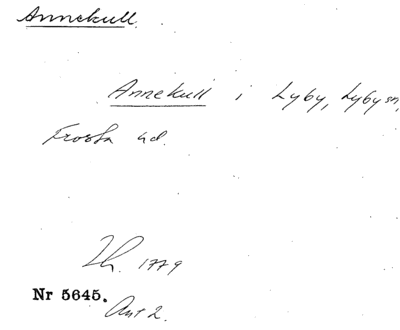 Annekull.
Annekull i Lyby, Lyby sn,
Frosta hd.
Lh. 1779
Nr 5645.
Ant 2.